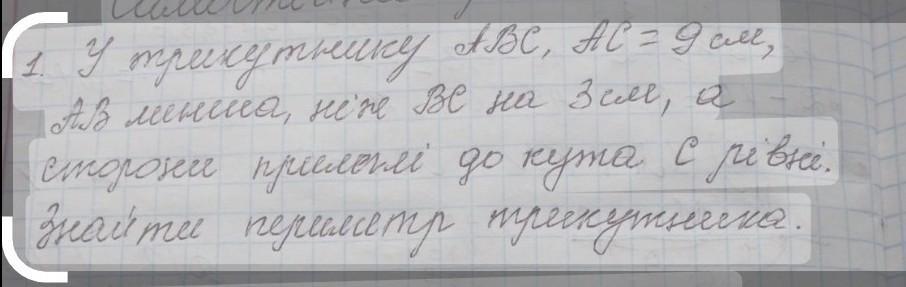 1. У трикутнику ABC, AC = 9 см,
AB менша, ніж BC на 3 см, а
сторони прилеглі до кута C рівні.
Знайти периметр трикутника.